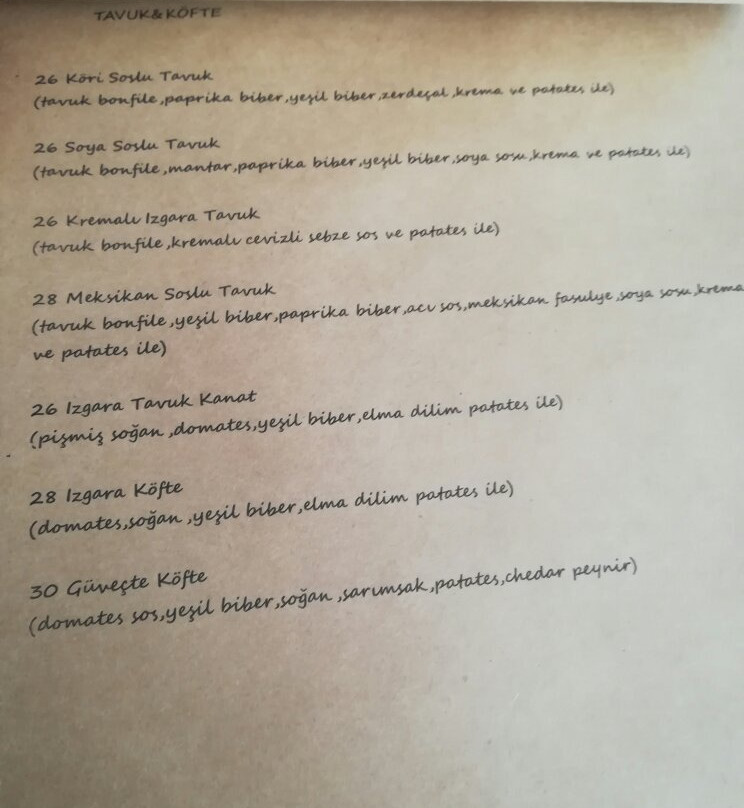 TAVUK&KÖFTE
26 Köri Soslu Tavuk
(tavuk bonfile,paprika biber,yeşil biber,zerdeçal,krema ve patates ile)
26 Soya Soslu Tavuk
(tavuk bonfile,mantar,paprika biber,yeşil biber,soya sosu,krema ve patates ile)
26 Kremalı Izgara Tavuk
(tavuk bonfile,kremalı cevizli sebze sos ve patates ile)
28 Meksikan Soslu Tavuk
(tavuk bonfile,yeşil biber,paprika biber,acı sos,meksikan fasulye,soya sosu,krema
ve patates ile)
26 Izgara Tavuk Kanat
(pişmiş soğan,domates,yeşil biber,elma dilim patates ile)
28 Izgara Köfte
(domates,soğan,yeşil biber,elma dilim patates ile)
30 Güveçte Köfte
(domates sos,yeşil biber,soğan,sarımsak,patates,chedar peynir)